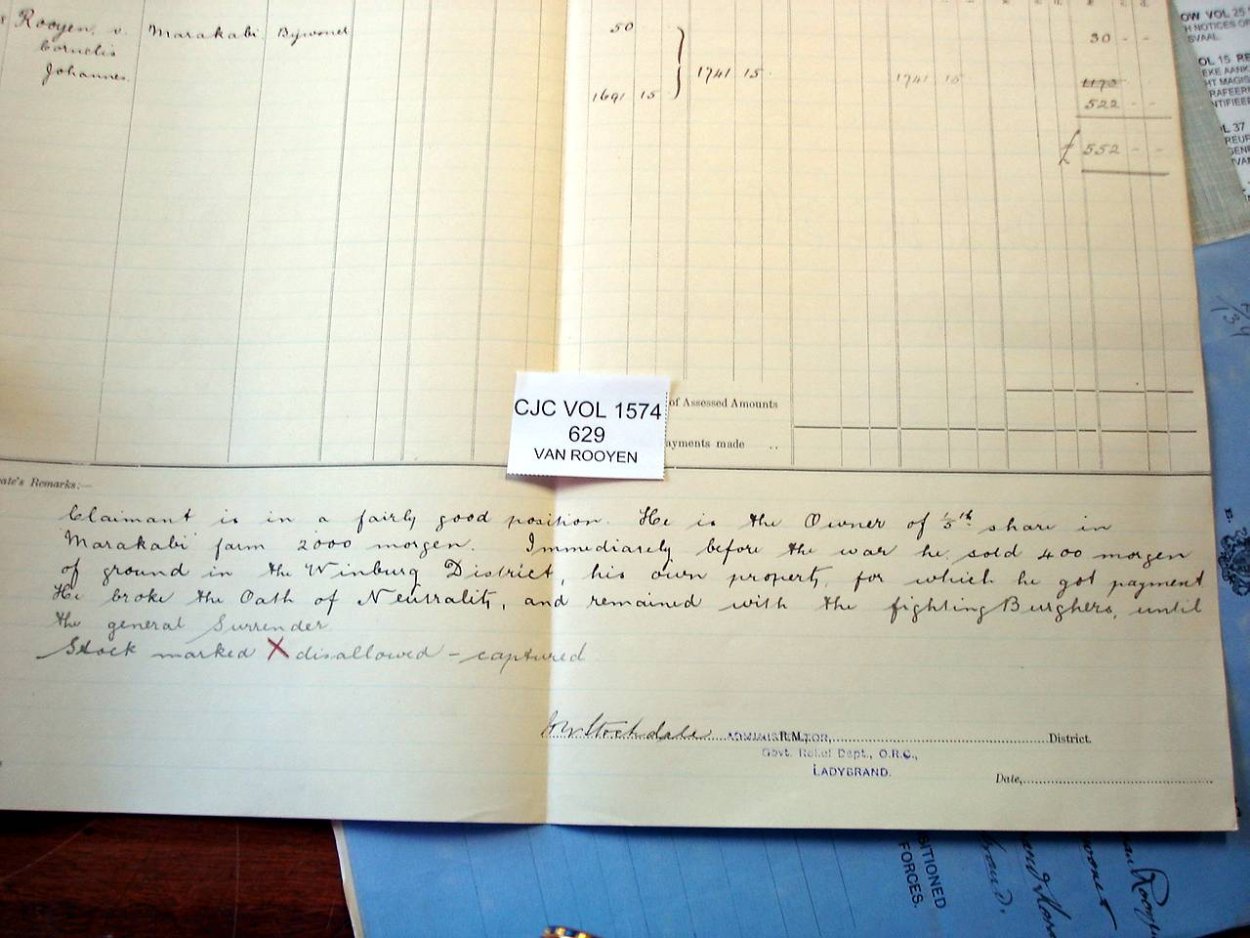 Rooyen, v. Marakabi Bywoner 50 30 - -
Cornelis
Johannes. 1741 15 1741 15 1173
1691 15 522 - -
£ 552 - -
CJC VOL 1574
629
VAN ROOYEN
of Assessed Amounts
ayments made ..
ate's Remarks:—
Claimant is in a fairly good position. He is the Owner of 1/5th share in
Marakabi farm 2000 morgen. Immediately before the war he sold 400 morgen
of ground in the Winburg District, his own property, for which he got payment
He broke the Oath of Neutrality, and remained with the fighting Burghers, until
the general Surrender
Stock marked X disallowed - captured
Stockdale ADMINISTRATOR, R.M., District.
Govt. Relief Dept., O.R.C.,
LADYBRAND.
Date,
OW VOL 25
H NOTICES OF
SVAAL
OL 15 RE
EKE AANK
HT MAGIS
RAFEER
NTIFIEE
L 37
REUF
GEN
VA
SITIONED
FORCES.